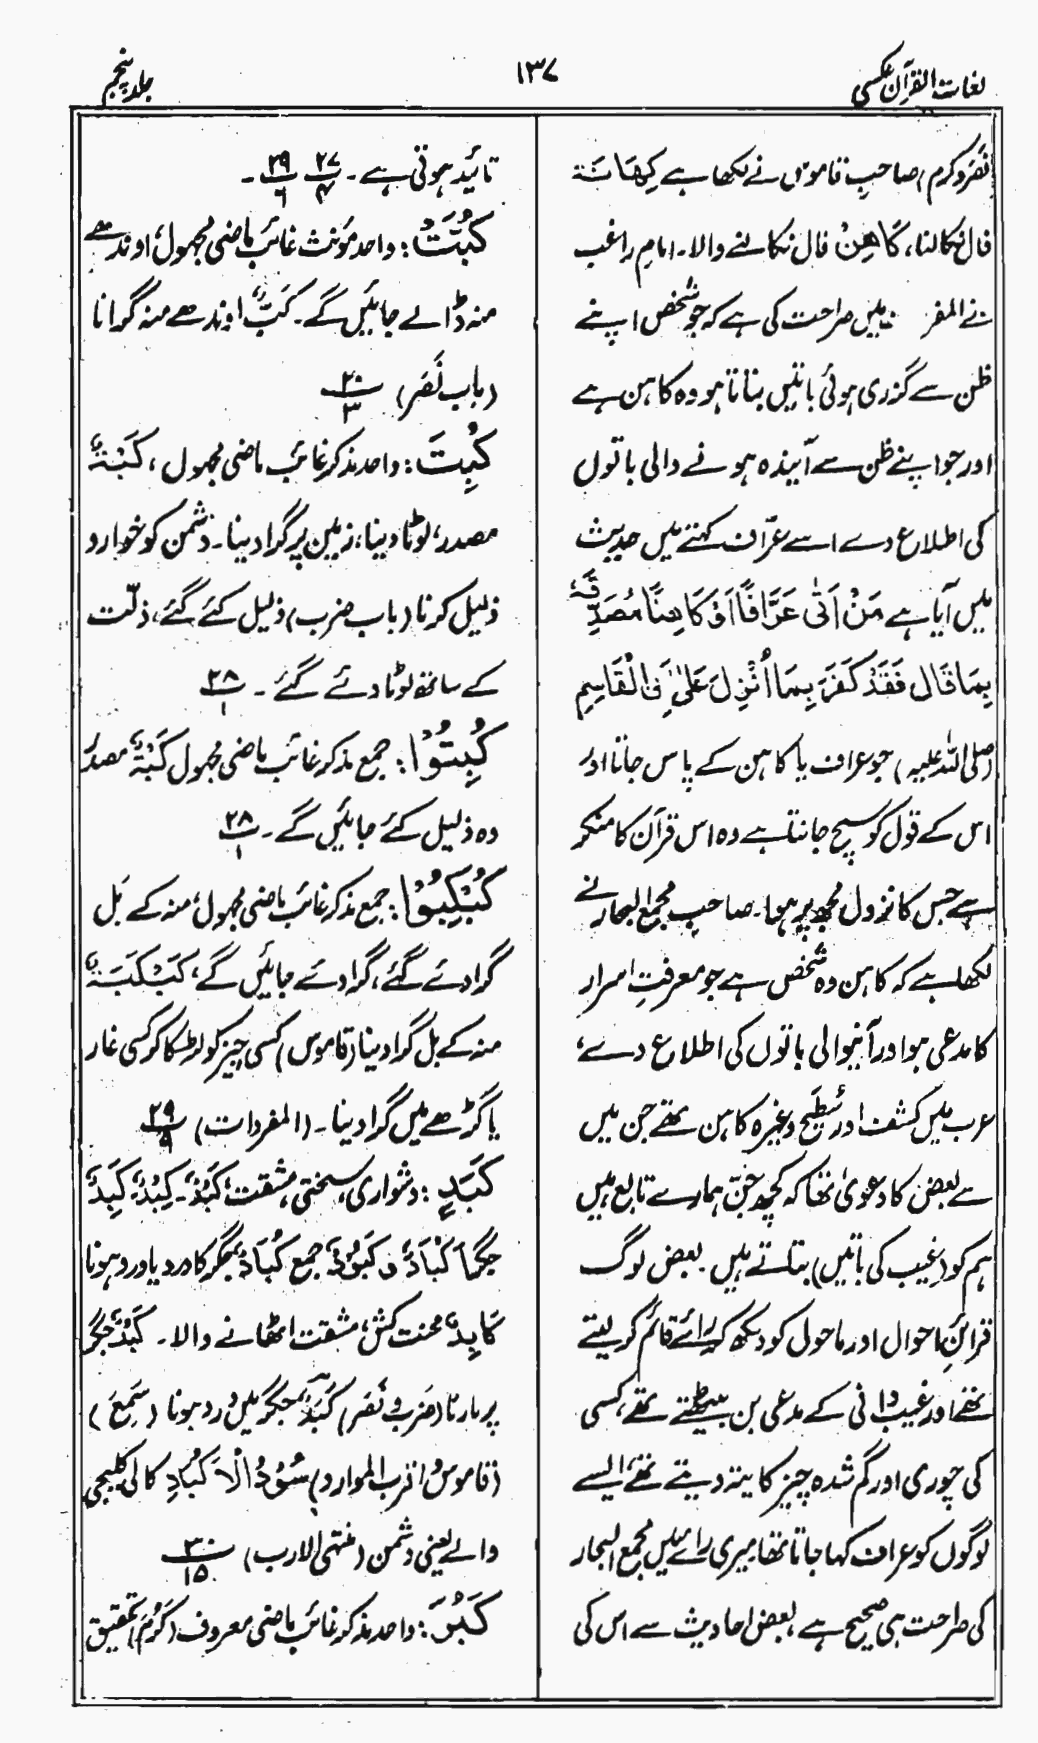 لغات القرآن عکسی
۱۳۷
جلد پنجم
نَصَرَ و کرم) صاحبِ قاموس نے لکھا ہے کِھَانَۃ
فال نکالنا، کَاھِنٌ فال نکالنے والا۔ امام راغب
نے المفر میں صراحت کی ہے کہ جو شخص اپنے
ظن سے گزری ہوئی باتیں بتاتا ہو وہ کاہن ہے
اور جو اپنے ظن سے آیندہ ہونے والی باتوں
کی اطلاع دے اسے عرّاف کہتے ہیں حدیث
میں آیا ہے مَنْ اَتٰی عَرَّافًا اَوْ کَاھِنًا فصَدَّقَہٗ
بِمَا قَالَ فَقَدْ کَفَرَ بِمَا اُنْزِلَ عَلٰی اَبِی الْقَاسِمِ
(صلی اللہ علیہ) جو عراف یا کاہن کے پاس جاتا اور
اس کے قول کو سچ جانتا ہے وہ اس قرآن کا منکر
ہے جس کا نزول مجھ پر ہوا۔ صاحبِ مجمع البحار نے
لکھا ہے کہ کاہن وہ شخص ہے جو معرفتِ اسرار
کا مدعی ہو اور آنیوالی باتوں کی اطلاع دے،
عرب میں کشف اور سُطَیح وغیرہ کاہن تھے جن میں
سے بعض کا دعویٰ تھا کہ کچھ جنّ ہمارے تابع ہیں
ہم کو (غیب کی باتیں) بتاتے ہیں بعض لوگ
قرائنِ احوال اور ماحول کو دیکھ کر رائے قائم کر لیتے
تھے اور غیب دانی کے مدعی بن بیٹھتے تھے، کسی
کی چوری اور گم شدہ چیز کا پتہ دیتے تھے، ایسے
لوگوں کو عراف کہا جاتا تھا میری رائے میں مجمع البحار
کی صراحت ہی صحیح ہے، بعض احادیث سے اس کی
تائید ہوتی ہے۔ ۲۷/۴ ۲۹/۶ ۔
کُبَّتْ: واحد مؤنث غائب ماضی مجہول، اوندھے
منہ ڈالے جائیں گے۔ کَبٌّ اوندھے منہ گرانا
(باب نَصَرَ) ۲۰/۳
کُبِتَ: واحد مذکر غائب ماضی مجہول، کَبْتٌ
مصدر، لوٹا دینا، زمین پر گرا دینا۔ دشمن کو خوار و
ذلیل کرنا (باب ضرب) ذلیل کئے گئے، ذلّت
کے ساتھ لوٹا دئے گئے ۔ ۲۸/۱
کُبِتُوْا: جمع مذکر غائب ماضی مجہول کَبْتٌ مصدر
وہ ذلیل کئے جائیں گے۔ ۲۸/۱
کُبْکِبُوْا: جمع مذکر غائب ماضی مجہول، منہ کے بَل
گرا دئے گئے، گرا دئے جائیں گے، کَبْکَبَۃٌ
منہ کے بل گرا دینا (قاموس) کسی چیز کو لڑھکا کر کسی غار
یا گڑھے میں گرا دینا۔ (المفردات) ۲۹/۹
کَبَدٍ: دشواری، سختی، مشقت، کَبْدٌ۔ کِبْدٌ، کَبِدٌ
جگر اَکْبَادٌ و کُبُوْدٌ جمع کُبَادٌ جگر کا درد یا درد ہونا
کَابِدٌ محنت کش مشقت اٹھانے والا۔ کَبْدٌ جگر
پر مارنا (ضَرَبَ و نَصَرَ) کَبَدٌ جگر میں درد ہونا (سَمِعَ)
(قاموس و اقرب الموارد) سُوْدُ الْاَکْبَادِ کالی کلیجی
والے یعنی دشمن (منتہی الارب) ۳۰/۱۵
کَبُرَ: واحد مذکر غائب ماضی معروف (کَرُمَ) تحقیق